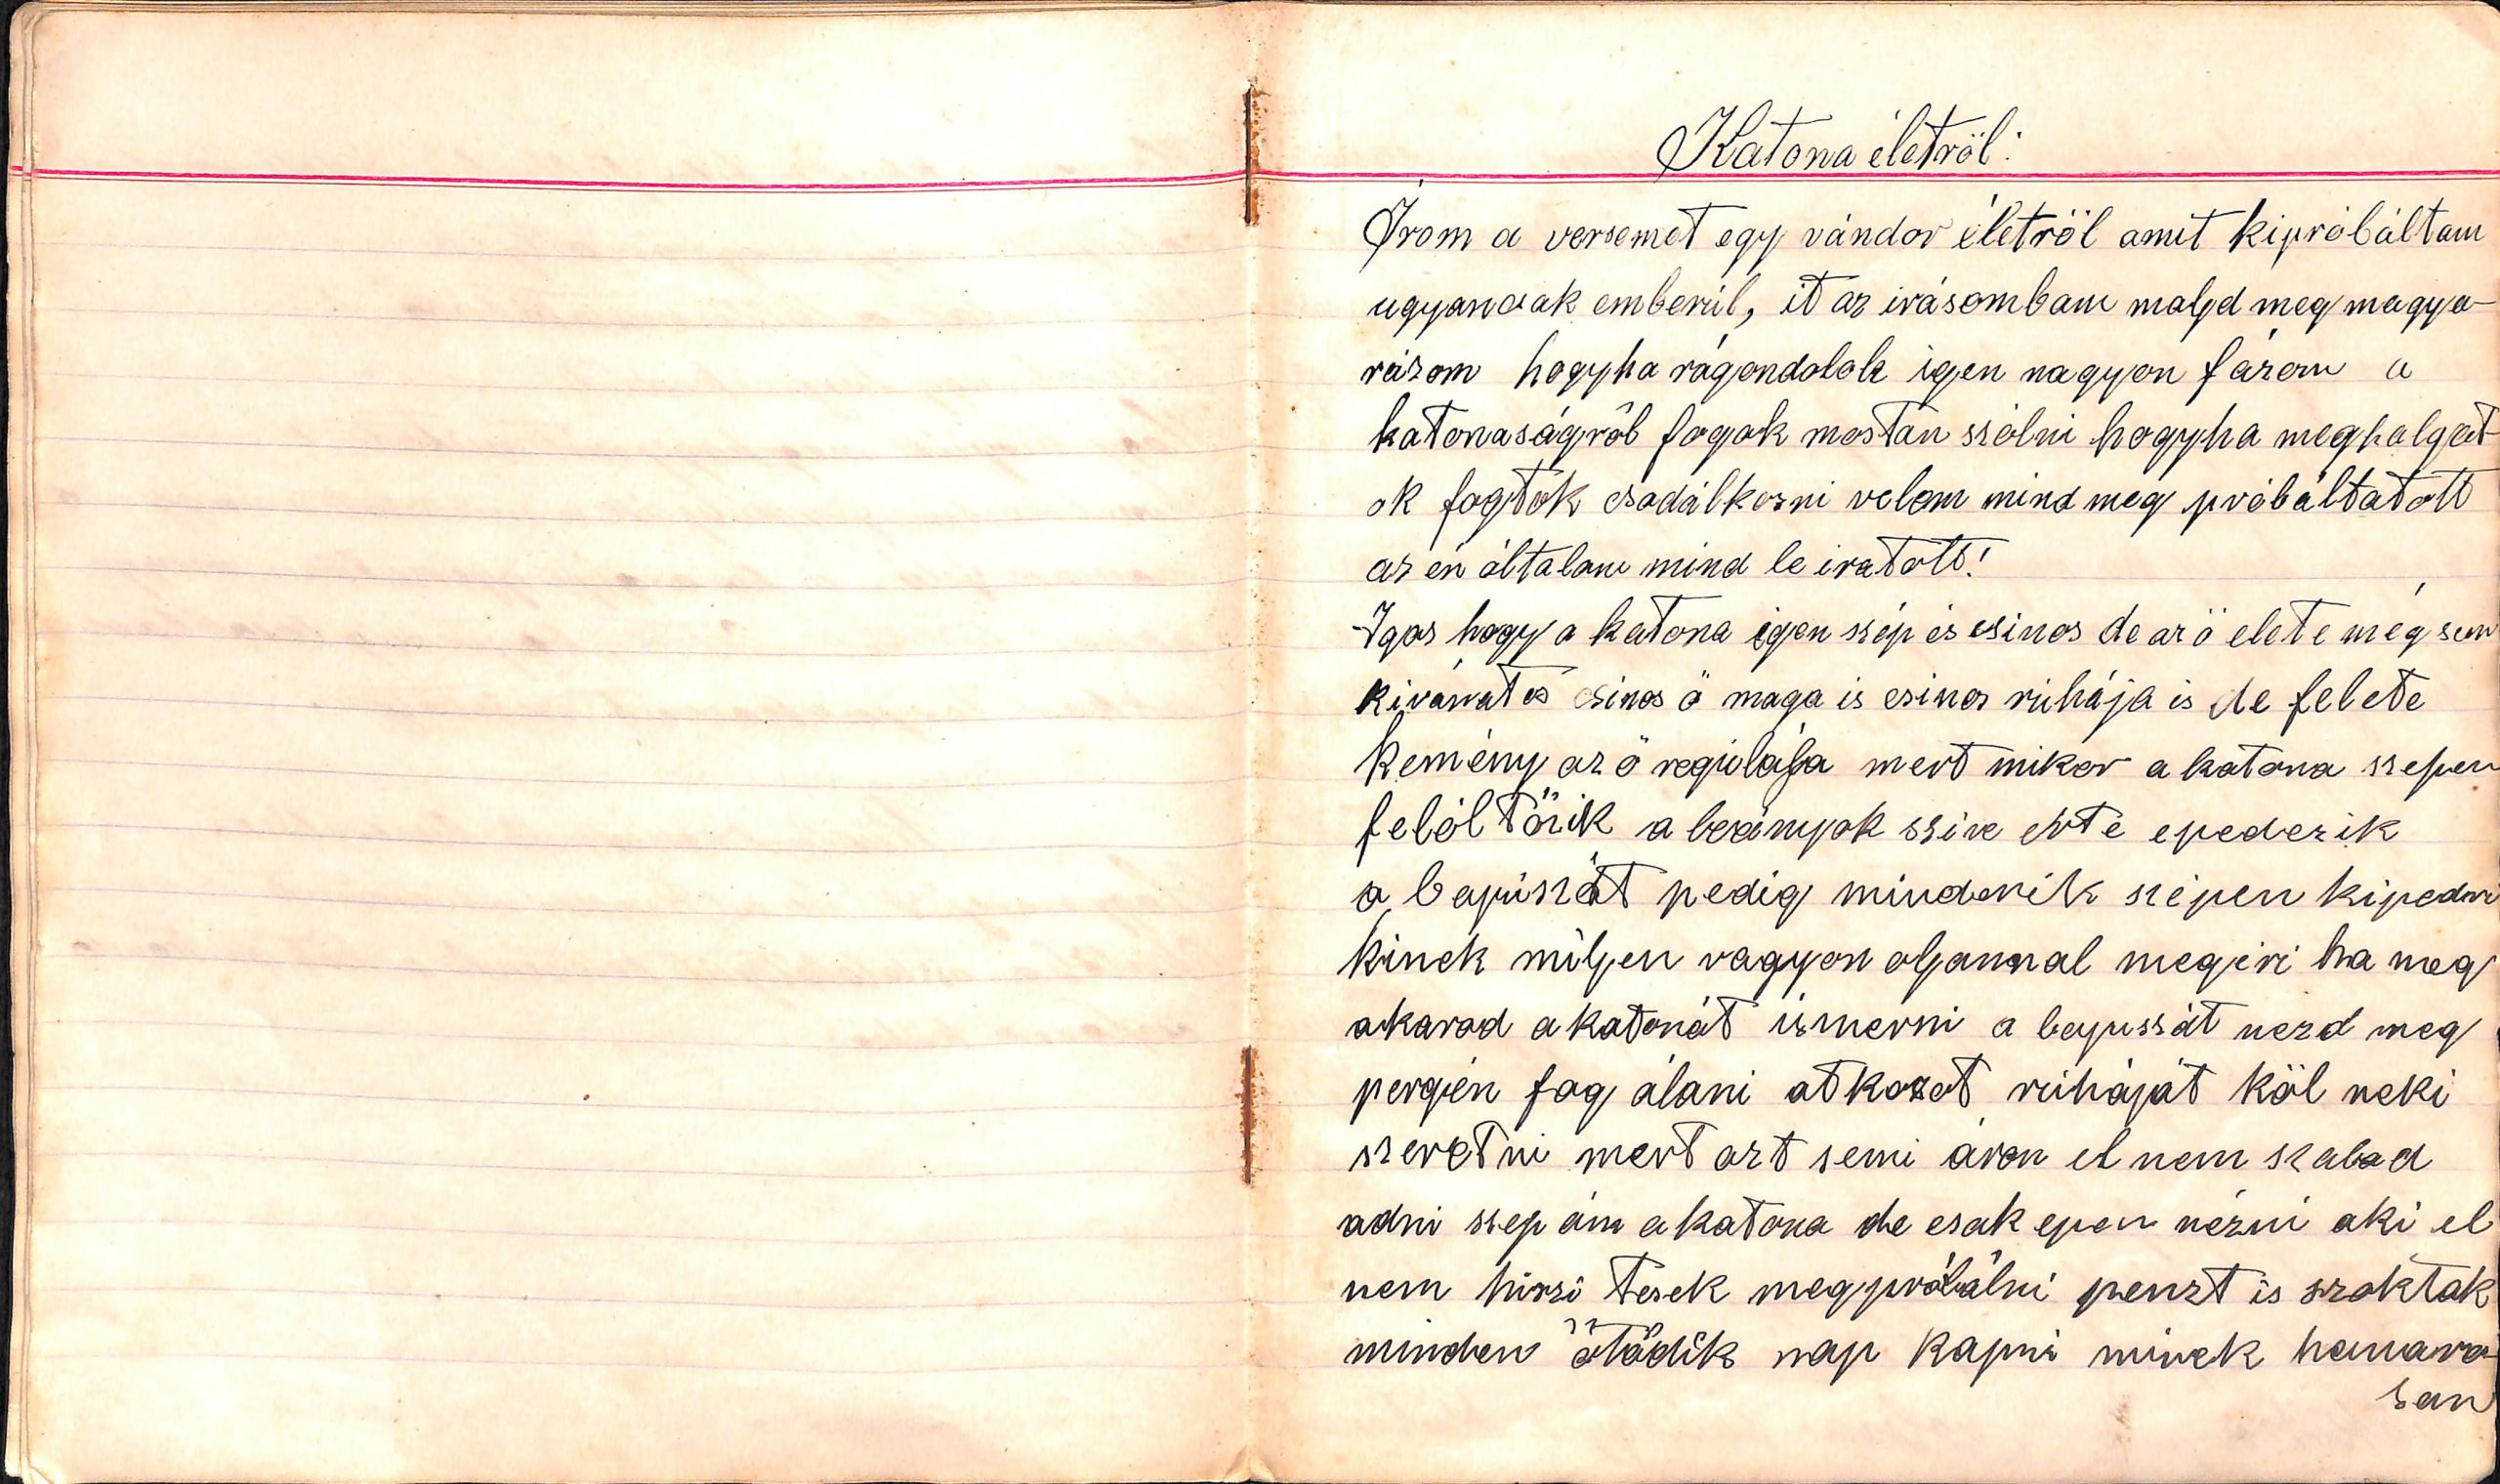 Katona életröl:
Írom a versemet egy vándor életröl amit kipróbáltam
ugyancsak emberül, it az irásomban majd meg magya-
rázom hogyha rágondolok igen nagyon fázom a
katonaságról fogok mostan szólni hogyha meghalgat
ok fogtok csodálkozni velem mind meg próbáltatott
az én általam mind le iratott!
Igaz hogy a katona igen szép és csinos de az ö elete még sem
kivánatos csinos ö maga is csinos ruhája is de felete
kemény az ö regulája mert mikor a katona szepen
felöltözik a leányok szive érte epedezik
a bajúszát pedig minderik szépen kipedri
kinek miljen vagyon oljannal megéri ha meg
akarod a katonát ismerni a bajuszát nezd meg
pergén fog álani atkozot ruháját köl neki
szeretni mert azt semi áron el nem szabad
adni szep ám a katona de csak epen nézni aki el
nem hiszi tesek megpróbálni penzt is szoktak
minden ötödik nap kapni minek hamaro-
san